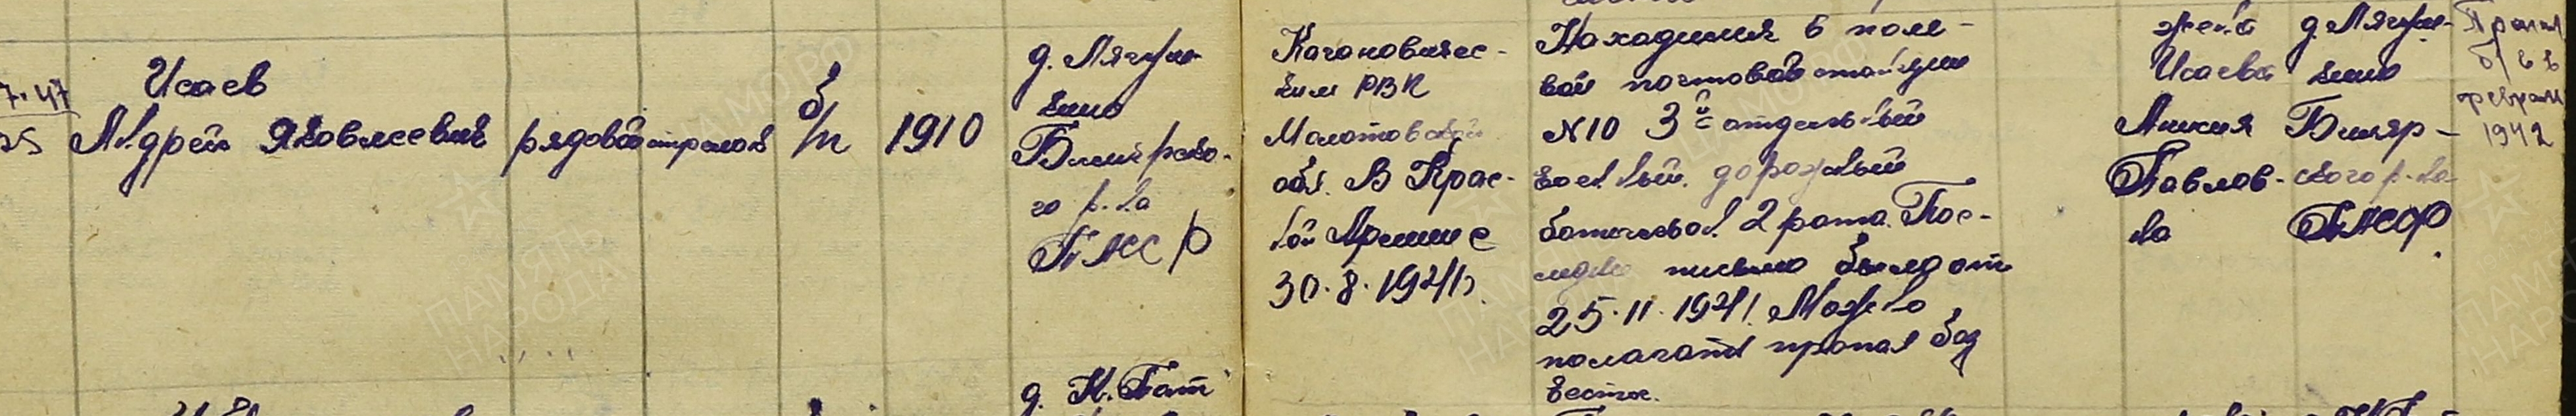 7.47
Исаев
Андрей Яковлеевич рядовой стрелок б/п 1910
д. Лягуш-
кино
Билярско-
го р-на
ТАССР
Кагановичес-
ким РВК
Молотовской
обл. В Крас-
ной Армии с
30.8.1941г.
Находился в поле-
вой почтовой станции
N10 3й отдельный
военный дорожный
батальон 2 рота. Пос-
ледне письмо было от
25.11.1941. Можно
полагать пропал без
вести.
жена
Исаева
Павлов-
на
д. Лягуш-
кино
Биляр-
ского р-на
ТАССР
Пропал
б/в в
феврале
1942
д. Н. Тат
ПАМЯТЬ
НАРОДА